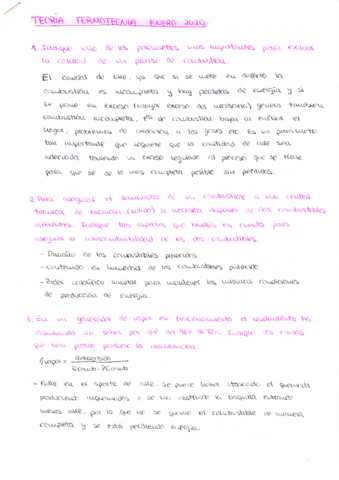 TEORIA TERMOTECNIA ENERO 2020
1. Indique uno de los parámetros más importantes para evaluar
la calidad de un proceso de combustión.
El caudal de aire, ya que si se mete en defecto la
combustión es incompleta y hay pérdidas de energía y si
se pone en exceso (mayor exceso del necesario) genera también
combustión incompleta, Tª de combustión baja al enfriar el
hogar, problemas de a los gases etc. Es un parámetro
tan importante que requiere que la cantidad de aire sea
adecuada, teniendo un exceso regulado al proceso que se tiene
para que sea de lo más completa posible sin pérdidas.
2. Para asegurar el suministro de un combustible a una central
térmica de biomasa (sólido) se necesita disponer de dos combustibles
diferentes. Indique tres aspectos que tendría en cuenta para
asegurar la intercambiabilidad de los dos combustibles.
- Tamaño de los combustibles parecidos
- contenido en humedad de los combustibles parecido
- Poder calorífico similar para mantener las mismas condiciones
de producción de energía.
3. En un generador de vapor en funcionamiento el rendimiento ha
disminuido sin saber por qué del 91% al 82%. Indique dos causas
que han podido producir la disminución.
- Fallo en el aporte de aire. Se puede haber atascado el quemador
produciendo inquemados o se ha obstruido la boquilla entrando
menos aire, por lo que no se quema el combustible de manera
completa y se está perdiendo energía.